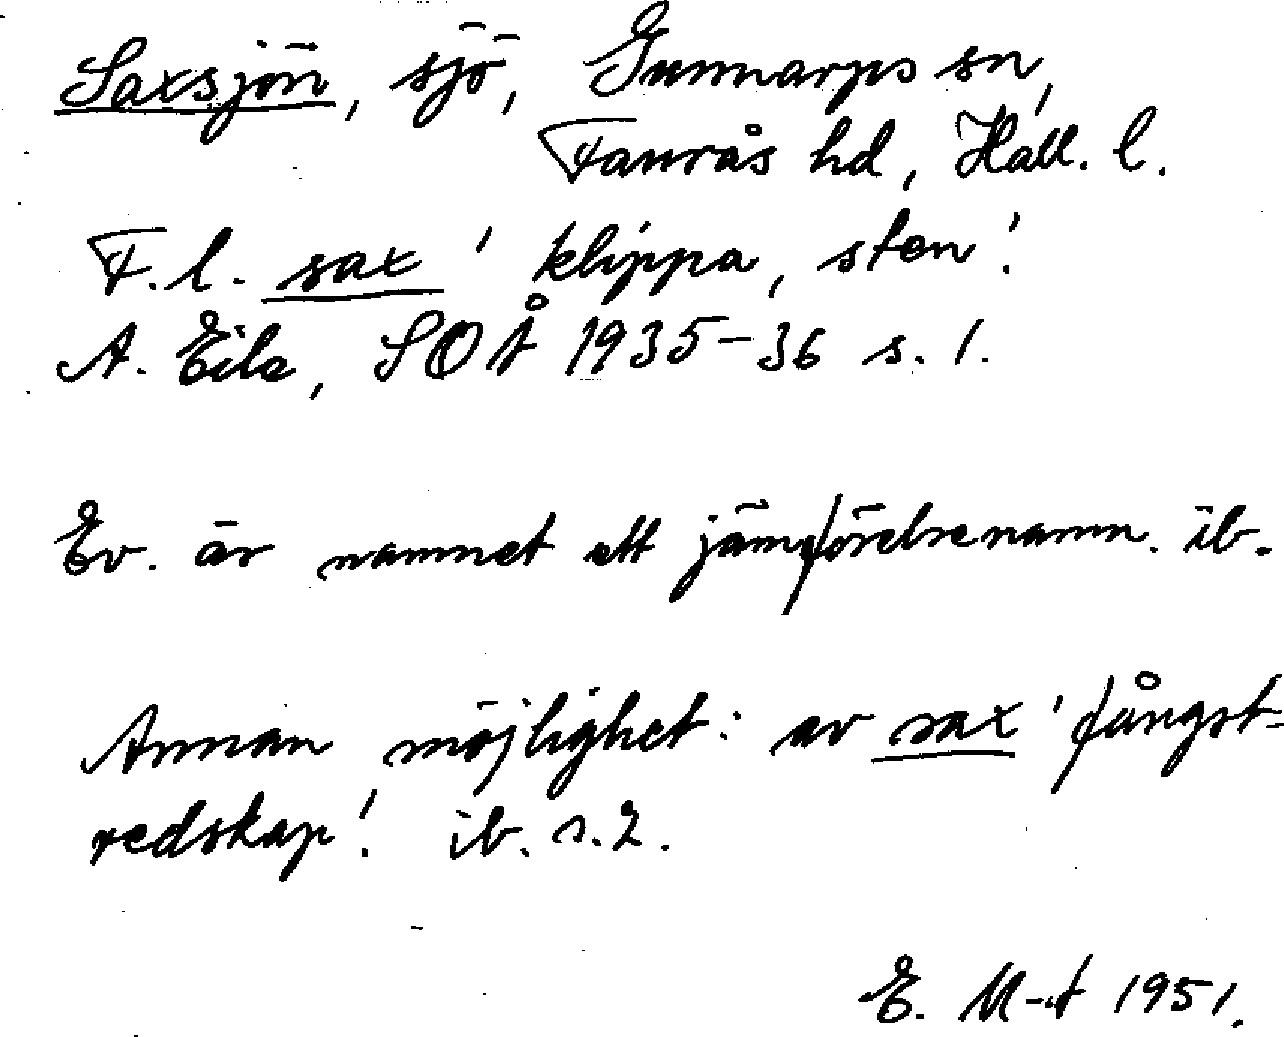 Saxsjön, sjö, Gunnarps sn,
Faurås hd, Hall. l.
F.l. sax 'klippa, sten'.
A. Eile, SOÅ 1935-36 s. 1.
Ev. är namnet ett jämförelsenamn. ib.
Annan möjlighet: av sax 'fångst-
redskap'. ib. s. 2.
E. M-t 1951.